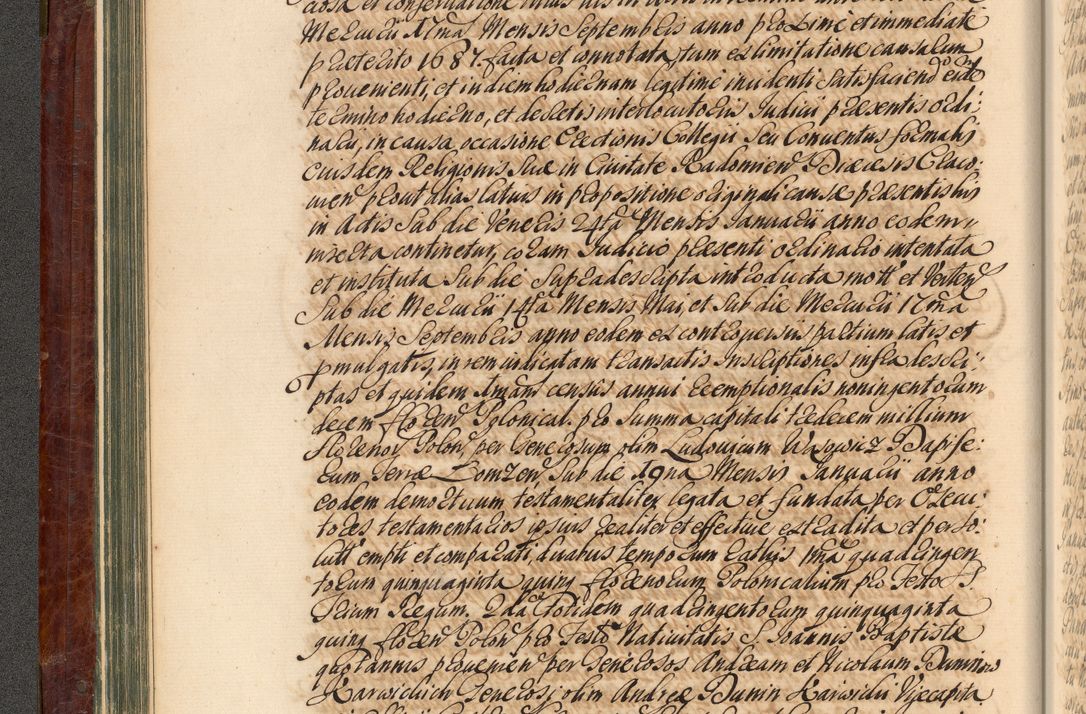 Mercurii 17ma Mensis Septembris anno proxime et immediate
praeterito 1687. facta et connotata, tum ex limitatione causarum
provenienti, et in diem hodiernam legitime incidenti satisfaciendo eidem
termino hodierno, et decretis interlocutoriis Judicii praesentis ordi:
narii, in causa, occasione Erectionis Collegii Seu Conventus formalis
eiusdem Religionis Suae in Civitate Radomien Dioecesis Craco:
vien prout alias latius in propositione originali causae praesentis his
in Actis Sub die Veneris 24ta Mensis Januarii anno eodem
inserta continetur, coram Judicio praesenti ordinario intentata
et instituta Sub die Supradescripta introducta mott et Verten
Sub die Mercurii 14ta Mensis Maii, et Sub die Mercurii 17ma
Mensis Septembris anno eodem ex controversiis partium latis et
pmulgatis, in rem iudicatam transactis Inscriptiones infra descri:
ptas et quidem 1mam census annui Exemptionalis noningentorum
decem floren Polonical. pro Summa capitali tredecem millium
florenor Polon, per Generosum olim Ludovicum Wasowicz Dapife:
rum Terrae Lomzen, Sub die 19na Mensis Januarii anno
eodem demortuum testamentaliter legata et fundata per Execu:
tores testamentarios ipsius realiter et effective extradita et per So:
lutt empti et comparati, duabus temporum ratis 1ma quadringen
torum quinquaginta quinq florenorum Polonicalium pro Festo S S
Trium Regum. 2da Totidem quadringentorum quinquaginta
quinq floren Polon pro Festo Nativitatis S. Joannis Baptistae
quotannis provenien per Generosos Andream et Nicolaum Dunin
Karwickich Generosi olim Andreae Dunin Karwicki Vicecapita